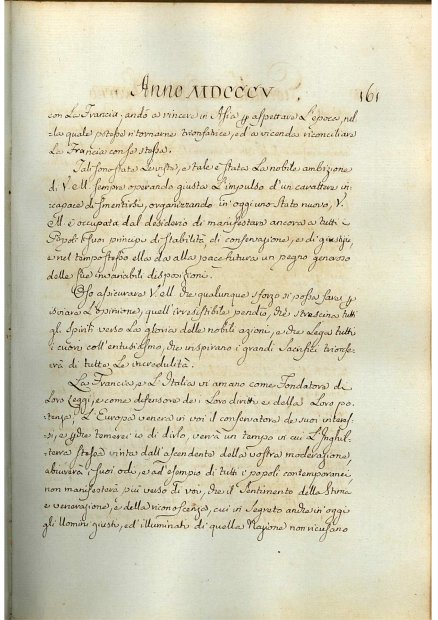 Anno MDCCCV. 161
con La Francia, andò a vincere in Asia per aspettare L'epoca, nel-
-la quale potesse ritornarne trionfatrice, ed a vicenda riconciliare
La Francia con se stessa.
Tali sono state Le viste, e tale è stata La nobile ambizione
di V. M. sempre operando giusta L'impulso d'un carattere in-
capace di smentirsi, organizzando in oggi uno Stato nuovo, V.
M. è occupata dal desiderio di manifestare ancora a tutti i
Popoli i suoi principj di stabilità, di conservazione, e di giustizia,
e nel tempo stesso ella dà alla pace futura un pegno generoso
delle sue invariabili disposizioni.
Oso assicurare V. M. che qualunque sforzo si possa fare per
isviare L'opinione, quell'irresistibile pendio, che strascina tutti
gli Spiriti verso La gloria delle nobili azioni, e che Lega tutti
i cuori coll'entusiasmo, che inspirano i grandi Sacrifici trionfe-
rà di tutte Le incredulità.
La Francia, e L'Italia vi amano come Fondatore di
Loro Leggi, e come difensore de' Loro diritti e della Loro po-
tenza. L'Europa venera in voi il conservatore de' suoi interes-
si, e che temerei io di dirlo, verrà un tempo in cui L'Inghil-
terra stessa vinta dall'ascendente della vostra moderazione,
abiurerà i suoi odj, e ad esempio di tutti i popoli contemporanei,
non manifesterà più verso di voi, che il Sentimento della Stima
e venerazione, e della riconoscenza, cui in Segreto anche in oggi
gli Uomini giusti, ed illuminati di quella Nazione non ricusano